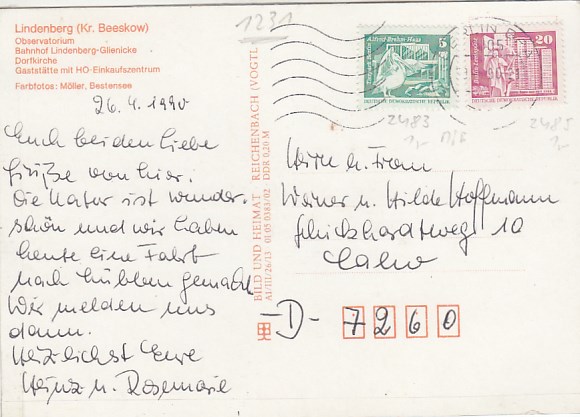 Lindenberg (Kr. Beeskow)
Observatorium
Bahnhof Lindenberg-Glienicke
Dorfkirche
Gaststätte mit HO-Einkaufszentrum
Farbfotos: Möller, Bestensee
1231
26.4.1990
Euch beiden liebe
Grüße von hier.
Die Natur ist wunder-
schön und wir haben
heute eine Fahrt
nach Lübben gemacht
Wir melden uns
dann.
Herzlichst Eure
Heinz u. Rosemarie
BILD UND HEIMAT REICHENBACH (VOGTL
A1/III/26/13 01 05 0383/02 DDR 0,20 M
Alfred Brehm Haus
Tierpark Berlin
5
DEUTSCHE DEMOKRATISCHE REPUBLIK
20
DEUTSCHE DEMOKRATISCHE REPUBLIK
2483
1,-
2485
1,-
Herrn u. Frau
Werner u. Hilde Hoffmann
Schickhardtweg 10
Calw
-D- 7260